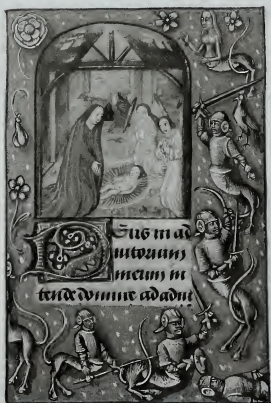 Deus in ad
iutorium
meum in
tende domine ad adiu